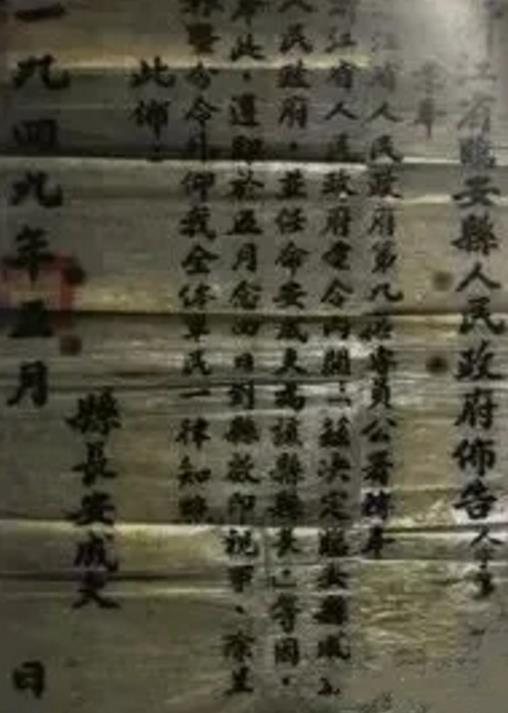 江省臨安縣人民政府佈告
字第
江省人民政府第九區專員公署轉奉
浙江省人民政府電令內開：「茲決定臨安縣成立
人民政府，並任命安成夫為該縣縣長」等因，
奉此，遵即於五月念四日到縣啟印視事，除呈
報暨分令外仰我全体軍民一律知照
此佈：
縣長安成文
一九四九年五月 日